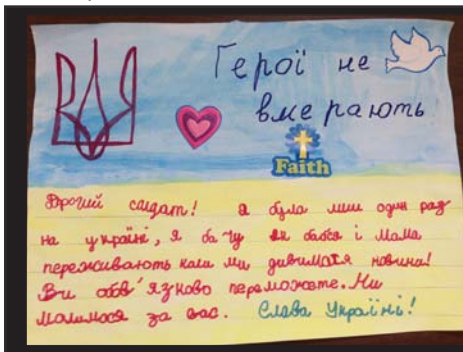 Герої не
вмерають
Faith
Дорогий солдат! Я була лиш один раз
на україні, я бачу як бабся і мама
переживають коли ми дивимося новини!
Ви обов'язково переможете. Ми
молимося за вас. Слава Україні!